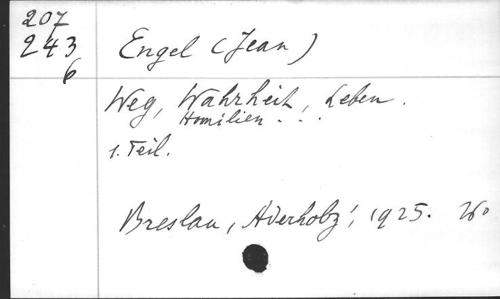 207
243
6
Engel (Jean)
Weg, Wahrheit, Leben.
Homilien . . .
1. Teil.
Breslau, Aderholz', 1925. 260